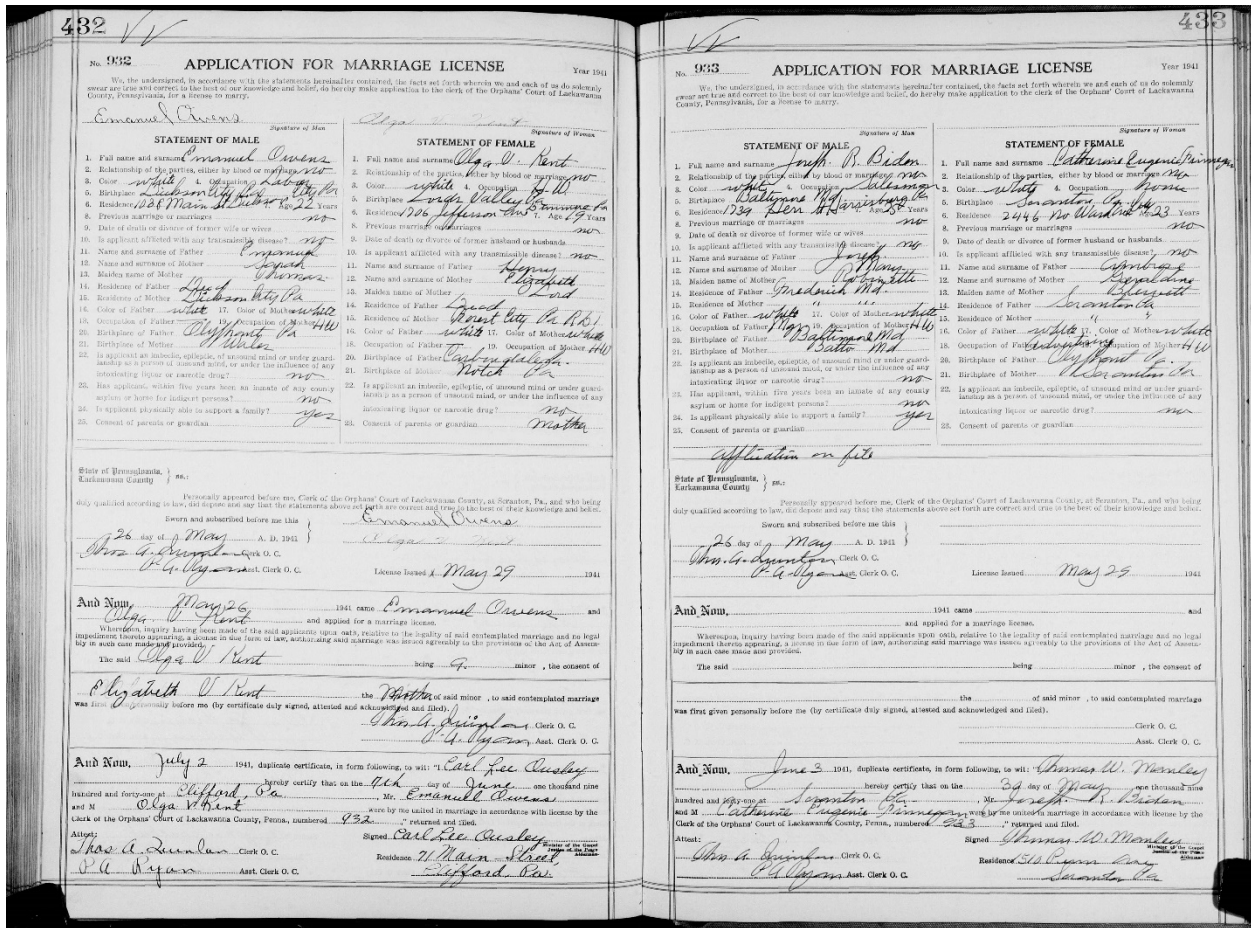 432
No. 932
APPLICATION FOR MARRIAGE LICENSE
Year 1941
We, the undersigned, in accordance with the statements hereinafter contained, the facts set forth wherein we and each of us do solemnly
swear are true and correct to the best of our knowledge and belief, do hereby make application to the clerk of the Orphans' Court of Lackawanna
County, Pennsylvania, for a license to marry.
Emanuel Owens
Olga V. Kent
Signature of Man
Signature of Woman
STATEMENT OF MALE
1. Full name and surname Emanuel Owens
2. Relationship of the parties, either by blood or marriage no
3. Color white 4. Occupation Labor
5. Birthplace Dickson City Pa
6. Residence 1038 Main St Age 22 Years
8. Previous marriage or marriages no
9. Date of death or divorce of former wife or wives
10. Is applicant afflicted with any transmissible disease? no
11. Name and surname of Father Emanuel
12. Name and surname of Mother Sarah
13. Maiden name of Mother Thomas
14. Residence of Father Dead
15. Residence of Mother Dickson City Pa
16. Color of Father white 17. Color of Mother white
18. Occupation of Father 19. Occupation of Mother HW
20. Birthplace of Father Olyphant Pa
21. Birthplace of Mother Wales
22. Is applicant an imbecile, epileptic, of unsound mind or under guard-
ianship as a person of unsound mind, or under the influence of any
intoxicating liquor or narcotic drug? no
23. Has applicant, within five years been an inmate of any county
asylum or home for indigent persons? no
24. Is applicant physically able to support a family? yes
25. Consent of parents or guardian
STATEMENT OF FEMALE
1. Full name and surname Olga V. Kent
2. Relationship of the parties, either by blood or marriage no
3. Color white 4. Occupation H.W.
5. Birthplace Valley Pa
6. Residence 1706 Jefferson Ave 7. Age 19 Years
8. Previous marriage or marriages no
9. Date of death or divorce of former husband or husbands
10. Is applicant afflicted with any transmissible disease? no
11. Name and surname of Father Henry
12. Name and surname of Mother Elizabeth
13. Maiden name of Mother Lord
14. Residence of Father Dead
15. Residence of Mother Forest City Pa RD 1
16. Color of Father white 17. Color of Mother white
18. Occupation of Father 19. Occupation of Mother HW
20. Birthplace of Father Carbondale Pa
21. Birthplace of Mother Pa
22. Is applicant an imbecile, epileptic, of unsound mind or under guard-
ianship as a person of unsound mind, or under the influence of any
intoxicating liquor or narcotic drug? no
23. Consent of parents or guardian Mother
State of Pennsylvania,
Lackawanna County
ss.:
Personally appeared before me, Clerk of the Orphans' Court of Lackawanna County, at Scranton, Pa., and who being
duly qualified according to law, did depose and say that the statements above set forth are correct and true to the best of their knowledge and belief.
Sworn and subscribed before me this
Emanuel Owens
26 day of May A. D. 1941
Olga V. Kent
Thos. A. Quinlan Clerk O. C.
P. A. Ryan Asst. Clerk O. C.
License Issued May 29 1941
And Now, May 26 1941 came Emanuel Owens and
Olga V Kent and applied for a marriage license.
Whereupon, inquiry having been made of the said applicants upon oath, relative to the legality of said contemplated marriage and no legal
impediment thereto appearing, a license in due form of law, authorizing said marriage was issued agreeably to the provisions of the Act of Assem-
bly in such case made and provided.
The said Olga V Kent being a minor, the consent of
Elizabeth V Kent the Mother of said minor, to said contemplated marriage
was first given personally before me (by certificate duly signed, attested and acknowledged and filed).
Thos A. Quinlan Clerk O. C.
P. A. Ryan Asst. Clerk O. C.
And Now, July 2 1941, duplicate certificate, in form following, to wit: "I Carl Lee Ousley
hereby certify that on the 7th day of June one thousand nine
hundred and forty-one at Clifford, Pa Mr. Emanuel Owens
and M Olga V Kent were by me united in marriage in accordance with license by the
Clerk of the Orphans' Court of Lackawanna County, Penna., numbered 932 ," returned and filed.
Attest:
Signed Carl Lee Ousley
Minister of the Gospel
Justice of the Peace
Alderman
Thos A. Quinlan Clerk O. C.
Residence 71 Main Street
P A Ryan Asst. Clerk O. C.
Clifford, Pa.
433
No. 933
APPLICATION FOR MARRIAGE LICENSE
Year 1941
We, the undersigned, in accordance with the statements hereinafter contained, the facts set forth wherein we and each of us do solemnly
swear are true and correct to the best of our knowledge and belief, do hereby make application to the clerk of the Orphans' Court of Lackawanna
County, Pennsylvania, for a license to marry.
Signature of Man
Signature of Woman
STATEMENT OF MALE
1. Full name and surname Joseph R. Biden
2. Relationship of the parties, either by blood or marriage no
3. Color white 4. Occupation Salesman
5. Birthplace Baltimore Md
6. Residence 1739 St Harrisburg Pa 7. Age 25 Years
8. Previous marriage or marriages no
9. Date of death or divorce of former wife or wives
10. Is applicant afflicted with any transmissible disease? no
11. Name and surname of Father Joseph
12. Name and surname of Mother Mary
13. Maiden name of Mother Robinette
14. Residence of Father Frederick Md.
15. Residence of Mother " "
16. Color of Father white 17. Color of Mother white
18. Occupation of Father 19. Occupation of Mother HW
20. Birthplace of Father Baltimore Md
21. Birthplace of Mother Balto Md
22. Is applicant an imbecile, epileptic, of unsound mind or under guard-
ianship as a person of unsound mind, or under the influence of any
intoxicating liquor or narcotic drug? no
23. Has applicant, within five years been an inmate of any county
asylum or home for indigent persons? no
24. Is applicant physically able to support a family? yes
25. Consent of parents or guardian
application on file
STATEMENT OF FEMALE
1. Full name and surname Catherine Eugenie Finnegan
2. Relationship of the parties, either by blood or marriage no
3. Color white 4. Occupation home
5. Birthplace Scranton Pa
6. Residence 2446 No Wash Ave Age 23 Years
8. Previous marriage or marriages no
9. Date of death or divorce of former husband or husbands
10. Is applicant afflicted with any transmissible disease? no
11. Name and surname of Father Ambrose
12. Name and surname of Mother Geraldine
13. Maiden name of Mother Blewitt
14. Residence of Father Scranton Pa
15. Residence of Mother " "
16. Color of Father white 17. Color of Mother white
18. Occupation of Father advertising 19. Occupation of Mother HW
20. Birthplace of Father Olyphant Pa.
21. Birthplace of Mother Scranton Pa
22. Is applicant an imbecile, epileptic, of unsound mind or under guard-
ianship as a person of unsound mind, or under the influence of any
intoxicating liquor or narcotic drug? no
23. Consent of parents or guardian
State of Pennsylvania,
Lackawanna County
ss.:
Personally appeared before me, Clerk of the Orphans' Court of Lackawanna County, at Scranton, Pa., and who being
duly qualified according to law, did depose and say that the statements above set forth are correct and true to the best of their knowledge and belief.
Sworn and subscribed before me this
26 day of May A. D. 1941
Thos. A. Quinlan Clerk O. C.
P. A. Ryan Asst. Clerk O. C.
License Issued May 29 1941
And Now, 1941 came and
and applied for a marriage license.
Whereupon, inquiry having been made of the said applicants upon oath, relative to the legality of said contemplated marriage and no legal
impediment thereto appearing, a license in due form of law, authorizing said marriage was issued agreeably to the provisions of the Act of Assem-
bly in such case made and provided.
The said being minor, the consent of
the of said minor, to said contemplated marriage
was first given personally before me (by certificate duly signed, attested and acknowledged and filed).
Clerk O. C.
Asst. Clerk O. C.
And Now, June 3 1941, duplicate certificate, in form following, to wit: "I Thomas W. Manley
hereby certify that on the 30 day of May one thousand nine
hundred and forty-one at Scranton Pa , Mr. Joseph R Biden
and M Catherine Eugenie Finnegan were by me united in marriage in accordance with license by the
Clerk of the Orphans' Court of Lackawanna County, Penna., numbered 933 ," returned and filed.
Attest:
Signed Thomas W. Manley
Minister of the Gospel
Justice of the Peace
Alderman
Thos A. Quinlan Clerk O. C.
Residence 1510 Ave
P A Ryan Asst. Clerk O. C.
Scranton Pa